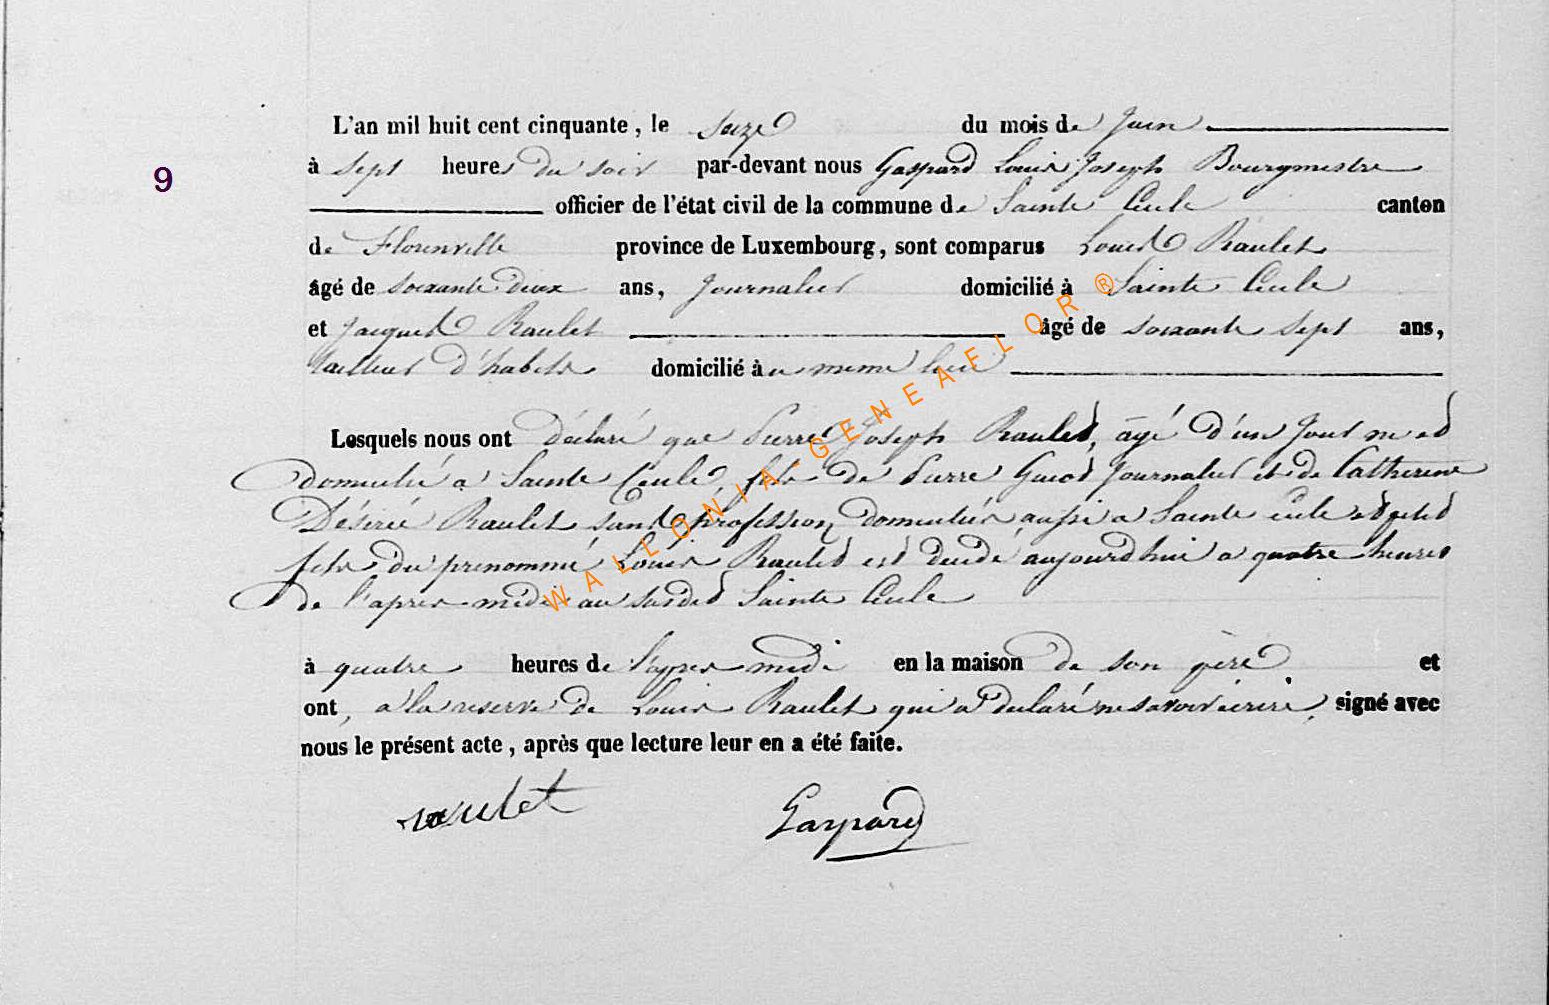 L'an mil huit cent cinquante, le Seize du mois de Juin
à Sept heures du soir par-devant nous Gaspard Louis Joseph Bourgmestre
9
officier de l'état civil de la commune de Sainte Cécile canton
de Florenville province de Luxembourg, sont comparus Louis Raulet
âgé de soixante deux ans, Journalier domicilié à Sainte Cécile
et Jacques Raulet âgé de soixante Sept ans,
tailleur d'habits domicilié au même lieu
Lesquels nous ont Déclaré que Pierre Joseph Raulet, âgé d'un Jour né et
domicilié a Sainte Cécile, fils de Pierre Guiot Journalier et de Catherine
Désirée Raulet sans profession domiciliés aussi a Sainte Cécile et petit
fils du prénommé Louis Raulet est décédé aujourd'hui a quatre heures
de l'apres-midi au susdit Sainte Cécile
à quatre heures de l'apres midi en la maison de son père et
ont, a la reserve de Louis Raulet qui a déclaré ne savoir écrire, signé avec
nous le présent acte, après que lecture leur en a été faite.
raulet Gaspard
WALLONIA-GENEAFLOR®